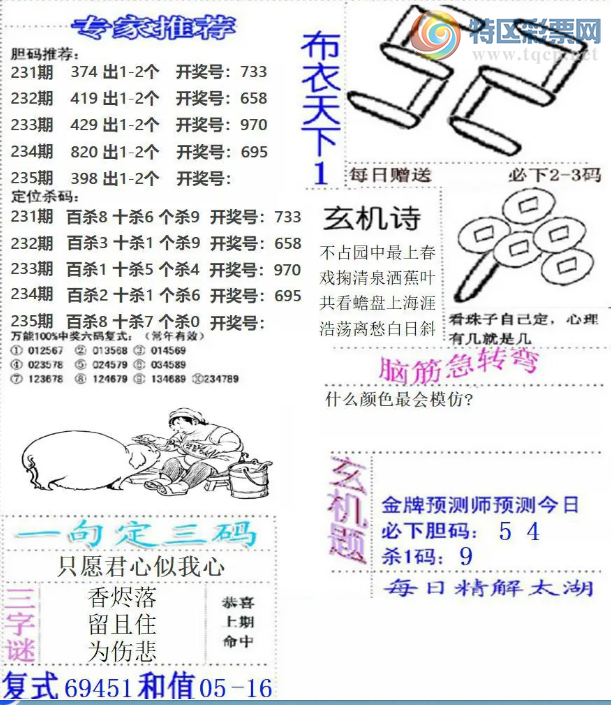 专家推荐
胆码推荐:
231期 374 出1-2个 开奖号: 733
232期 419 出1-2个 开奖号: 658
233期 429 出1-2个 开奖号: 970
234期 820 出1-2个 开奖号: 695
235期 398 出1-2个 开奖号:
定位杀码:
231期 百杀8 十杀6 个杀9 开奖号: 733
232期 百杀3 十杀1 个杀9 开奖号: 658
233期 百杀1 十杀5 个杀4 开奖号: 970
234期 百杀2 十杀1 个杀6 开奖号: 695
235期 百杀8 十杀7 个杀0 开奖号:
万能100%中奖六码复式: (常年有效)
① 012567 ② 013568 ③ 014569
④ 023578 ⑤ 024579 ⑥ 034589
⑦ 123678 ⑧ 124679 ⑨ 134689 ⑩234789
一句定三码
只愿君心似我心
三字谜
香烬落
留且住
为伤悲
恭喜
上期
命中
复式 69451 和值 05-16
布衣天下1
特区彩票网
www.tqcp.net
每日赠送 必下2-3码
玄机诗
不占园中最上春
戏掬清泉洒蕉叶
共看蟾盘上海涯
浩荡离愁白日斜
看珠子自己定，心理
有几就是几
脑筋急转弯
什么颜色最会模仿?
玄机题
金牌预测师预测今日
必下胆码: 5 4
杀1码: 9
每日精解太湖